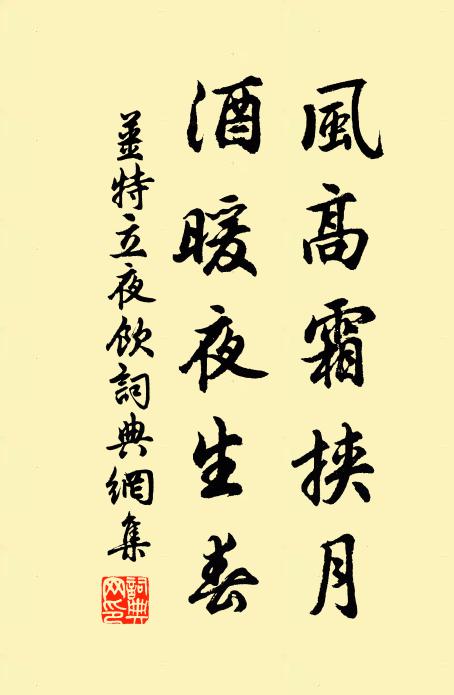 風高霜挾月
酒暖夜生春
薑特立夜飲詞典網集
詞典网印